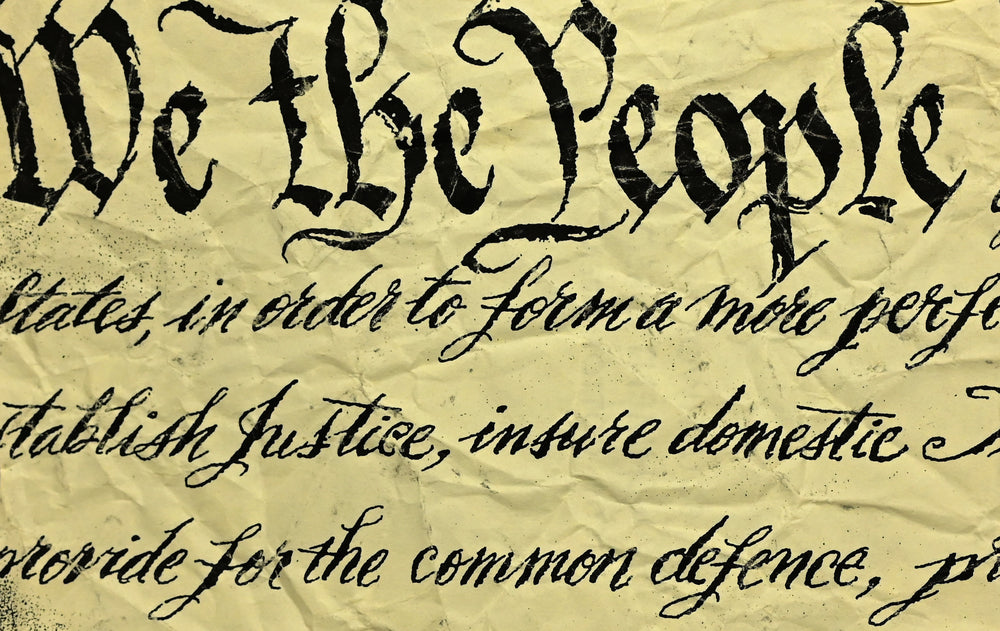 We the People
States, in order to form a more perfe
stablish Justice, insure domestic
provide for the common defence, pr